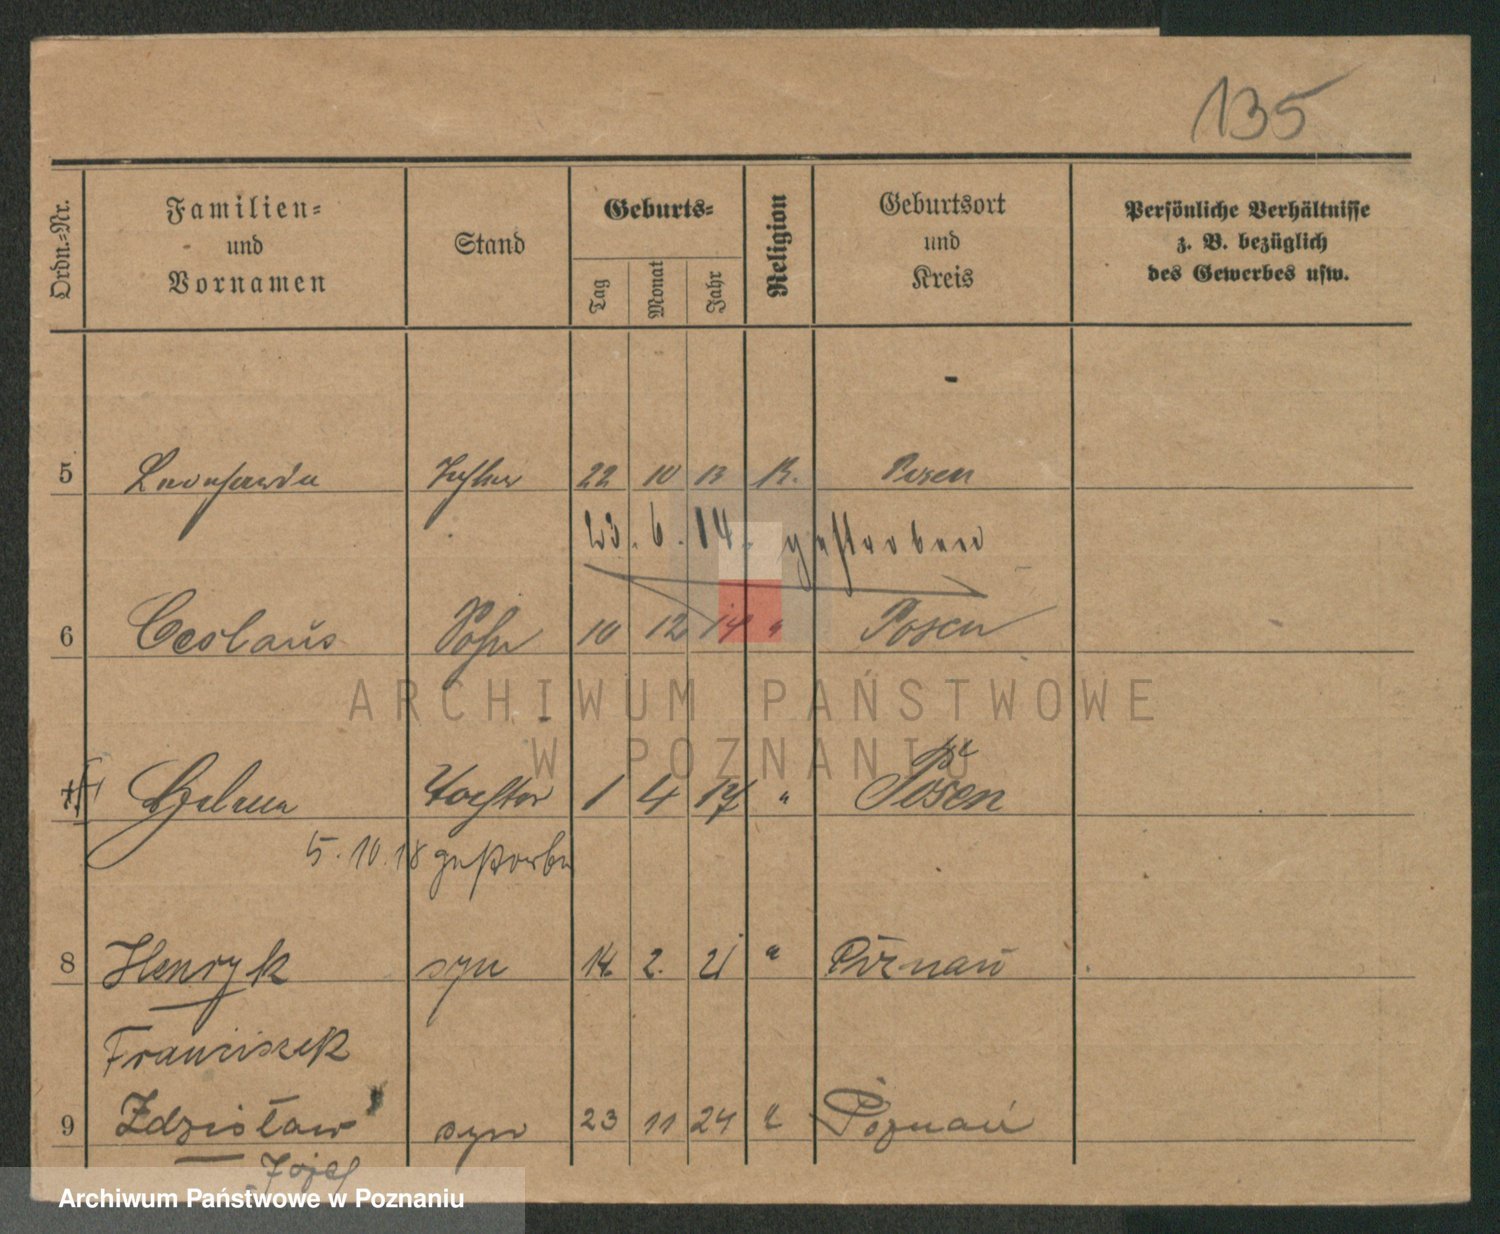 135
Ordn.-Nr.
Familien-
und
Vornamen
Stand
Geburts-
Tag
Monat
Jahr
Religion
Geburtsort
und
Kreis
Persönliche Verhältnisse
z. B. bezüglich
des Gewerbes usw.
5 Leonharda Tochter 22 10 13 K. Posen
23. 6. 14. gestorben
6 Ceslaus Sohn 10 12 14 " Posen
ARCHIWUM PAŃSTWOWE
W POZNANIU
7 Helena Tochter 1 4 17 " Posen
5. 10. 18 gestorben
8 Henryk syn 14. 2. 21 " Poznań
Franciszek
9 Zdzisław syn 23 11 24 " Poznań
Józef
Archiwum Państwowe w Poznaniu